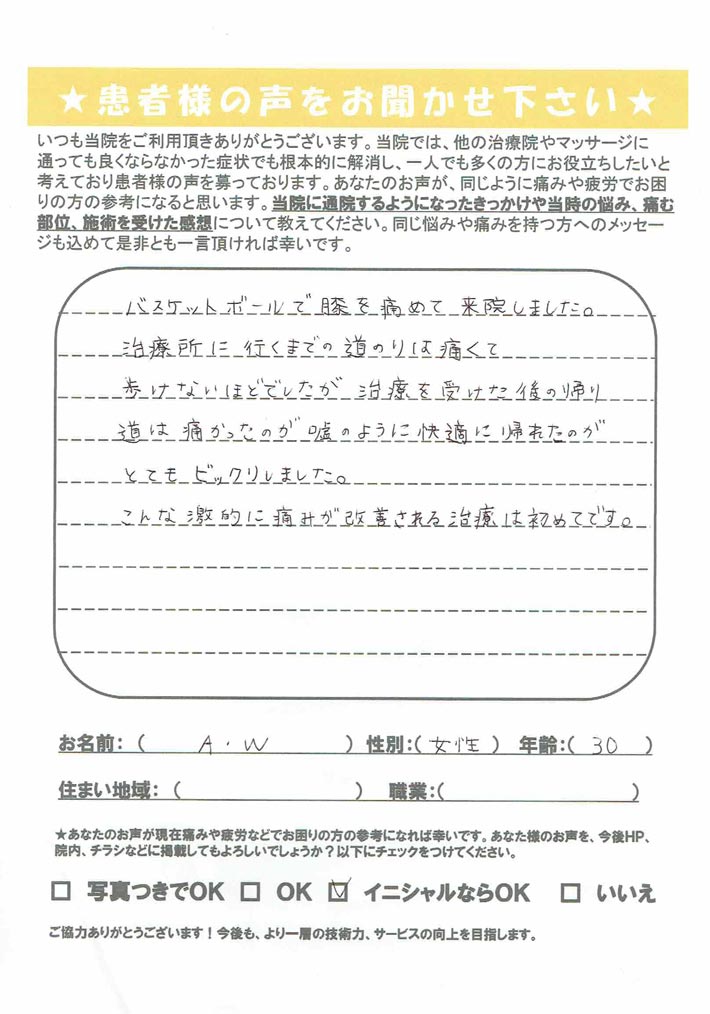 ★患者様の声をお聞かせ下さい★
いつも当院をご利用頂きありがとうございます。当院では、他の治療院やマッサージに
通っても良くならなかった症状でも根本的に解消し、一人でも多くの方にお役立ちしたいと
考えており患者様の声を募っております。あなたのお声が、同じように痛みや疲労でお困
りの方の参考になると思います。当院に通院するようになったきっかけや当時の悩み、痛む
部位、施術を受けた感想について教えてください。同じ悩みや痛みを持つ方へのメッセー
ジも込めて是非とも一言頂ければ幸いです。
バスケットボールで膝を痛めて来院しました。
治療所に行くまでの道のりは痛くて
歩けないほどでしたが治療を受けた後の帰り
道は痛かったのが嘘のように快適に帰れたのが
とてもビックリしました。
こんな激的に痛みが改善される治療は初めてです。
お名前：（ A.W ） 性別：（女性） 年齢：（ 30 ）
住まい地域：（ ） 職業：（ ）
★あなたのお声が現在痛みや疲労などでお困りの方の参考になれば幸いです。あなた様のお声を、今後HP、
院内、チラシなどに掲載してもよろしいでしょうか？以下にチェックをつけてください。
□ 写真つきでOK □ OK ☑ イニシャルならOK □ いいえ
ご協力ありがとうございます！今後も、より一層の技術力、サービスの向上を目指します。